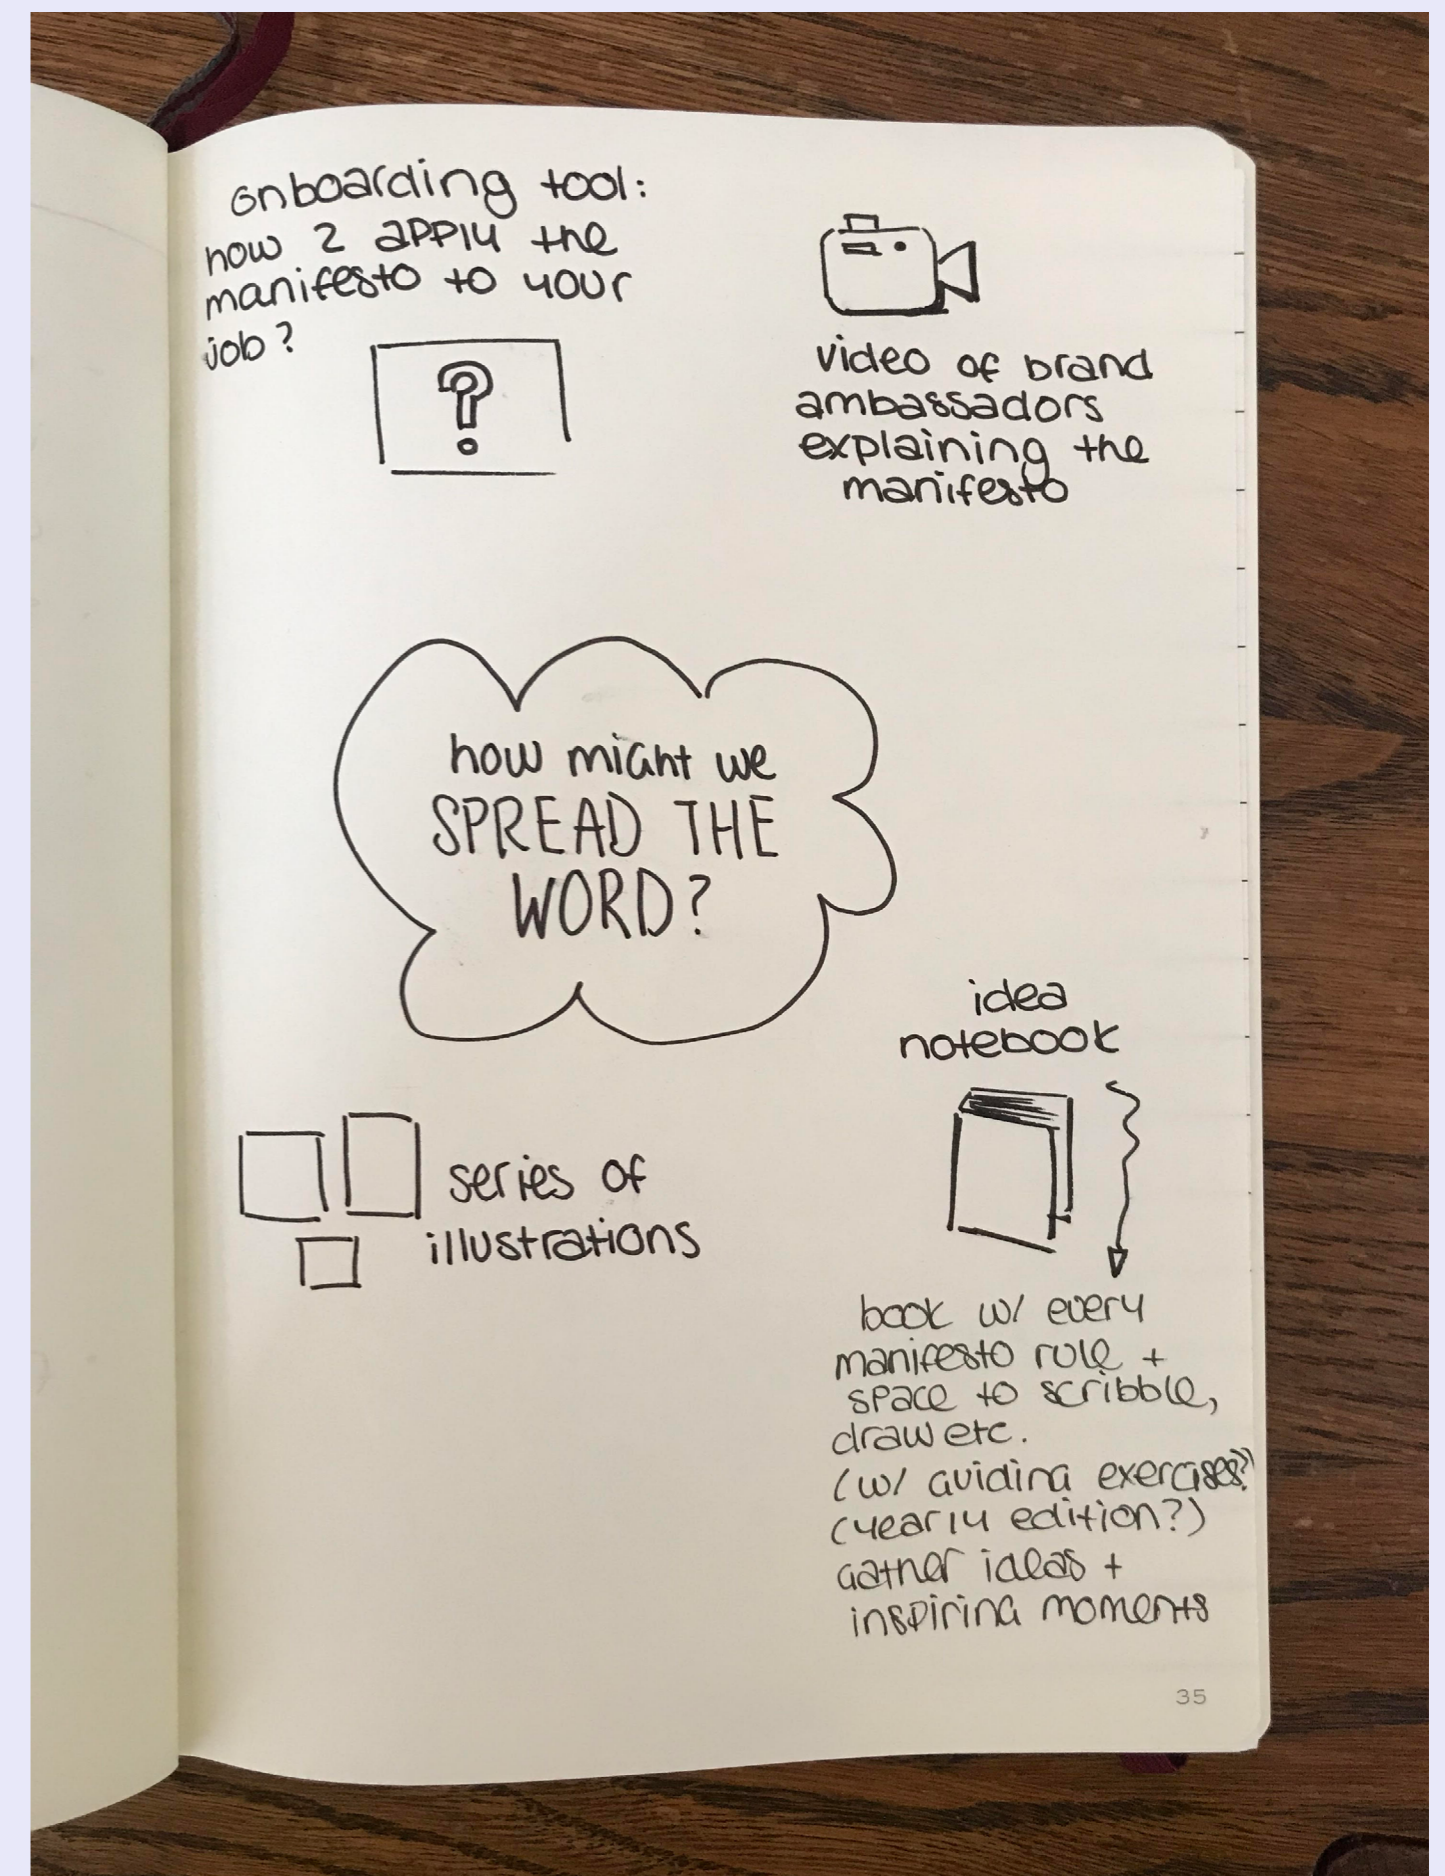 onboarding tool:
how 2 apply the
manifesto to your
job?
?
video of brand
ambassadors
explaining the
manifesto
how might we
SPREAD THE
WORD?
idea
notebook
series of
illustrations
book w/ every
manifesto rule +
space to scribble,
draw etc.
(w/ guiding exercises?)
(yearly edition?)
gather ideas +
inspiring moments
35